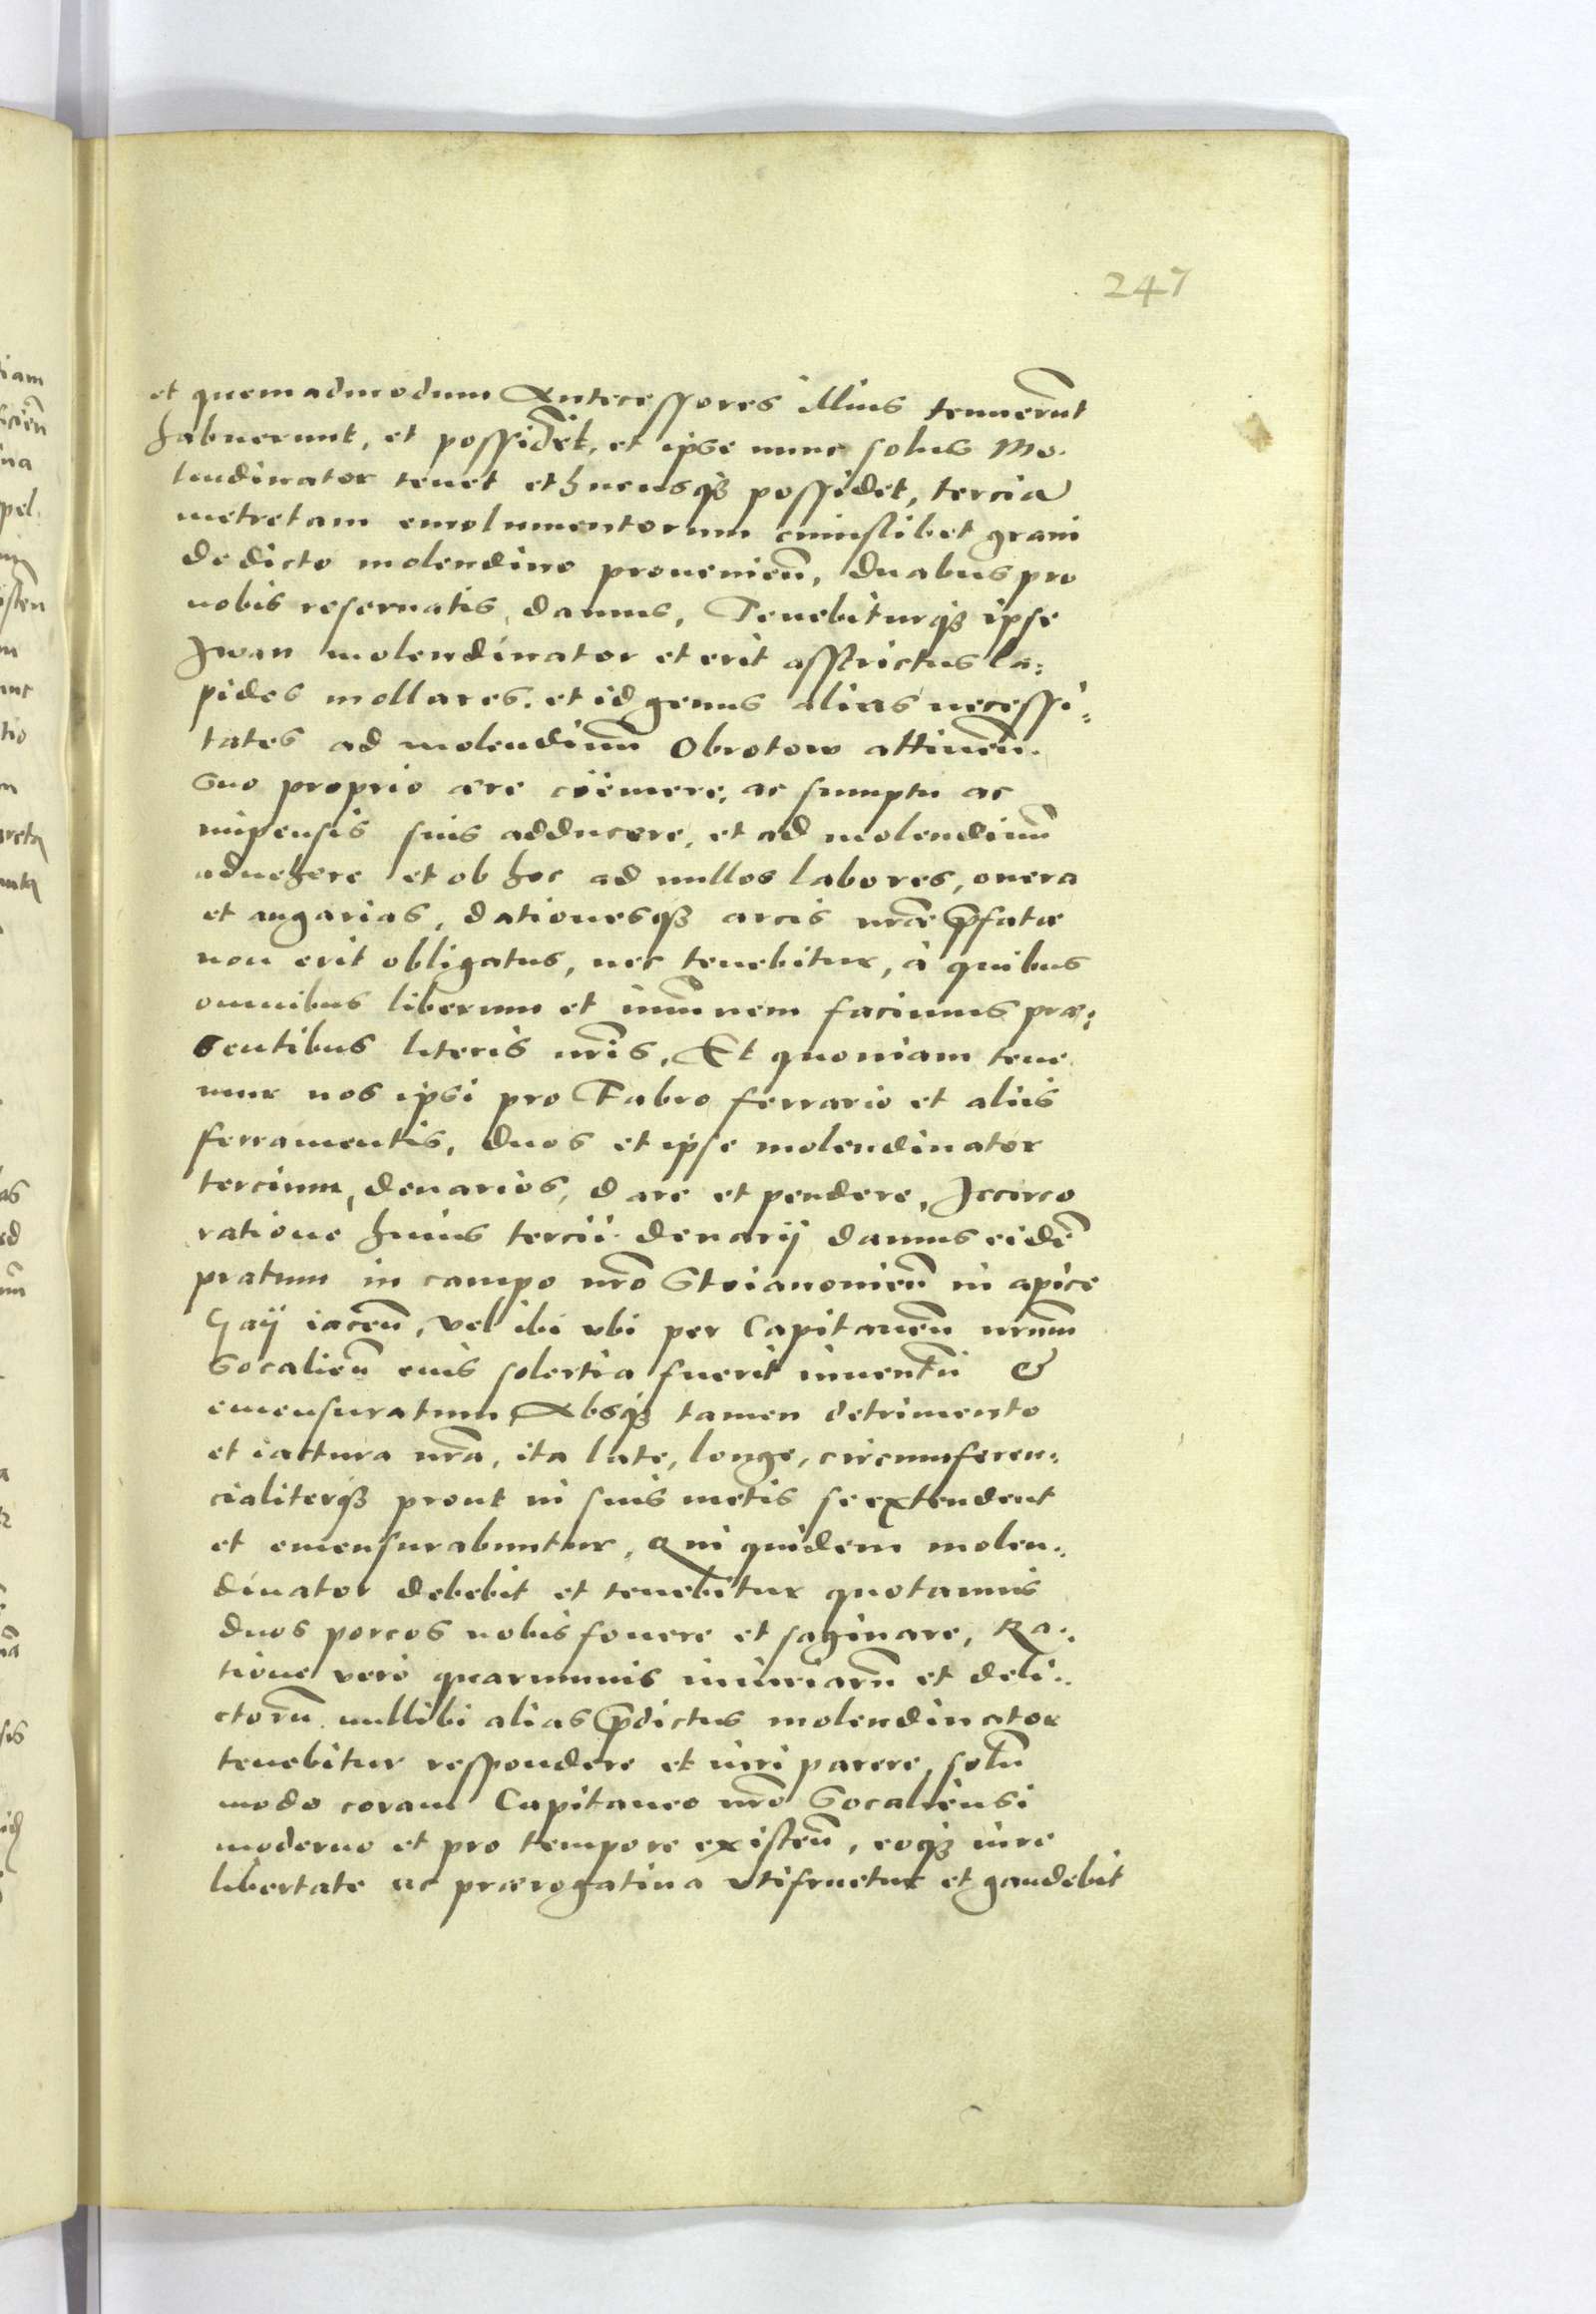 247
et quemadmodum Antecessores illius tenuerūt
habuerunt, et possidēt, et ipse nunc solus Mo.
lendinator tenet et hucusqꝫ possidet, tercia
metretam emolumentorum cuiuslibet grani
de dicto molendino prouenieñ, duabus pro
nobis reseruatis, damus, Tenebiturqꝫ ipse
Iwan molendinator et erit asstrictus la:
pides mollares. et id genus alias necessi:
tates ad molendinū Obrotow attineñ.
suo proprio aere coëmere, ac sumptu ac
impensis suis adducere, et ad molendinū
aduehere et ob hoc ad nullos labores, onera
et angarias, dationesqꝫ arcis nr̃ae p̃fatae
non erit obligatus, nec tenebitur, à quibus
omnibus liberum et imūnem facimus prae:
sentibus literis nr̃is, Et quoniam tene
mur nos ipsi pro Fabro ferrario et aliis
ferramentis, duos et ipse molendinator
tercium, denarios, dare et pendere, Iccirco
ratione huius tercii denarij damus eidē
pratum in campo nr̃o Stoianouieñ in apice
Gaij iaceñ, vel ibi vbi per Capitaneū nr̃um
Socalieñ eius solertia fuerit inuentū &
emensuratum, Absqꝫ tamen detrimento
et iactura nr̃a, ita late, longe, circumferen:
cialiterqꝫ prout in suis metis se extendent
et emensurabuntur, Qui quidem molen:
dinator debebit et tenebitur quotannis
duos porcos nobis fouere et saginare, Ra:
tione vero quarumuis iniuriarū et deli:
ctorū nullibi alias p̃dictus molendinator
tenebitur respondere et iuri parere, solū
modo coram Capitaneo nr̃o Socaliensi
moderno et pro tempore existeñ, eoqꝫ iure
libertate ac praerogatiua vtifruetur et gaudebit